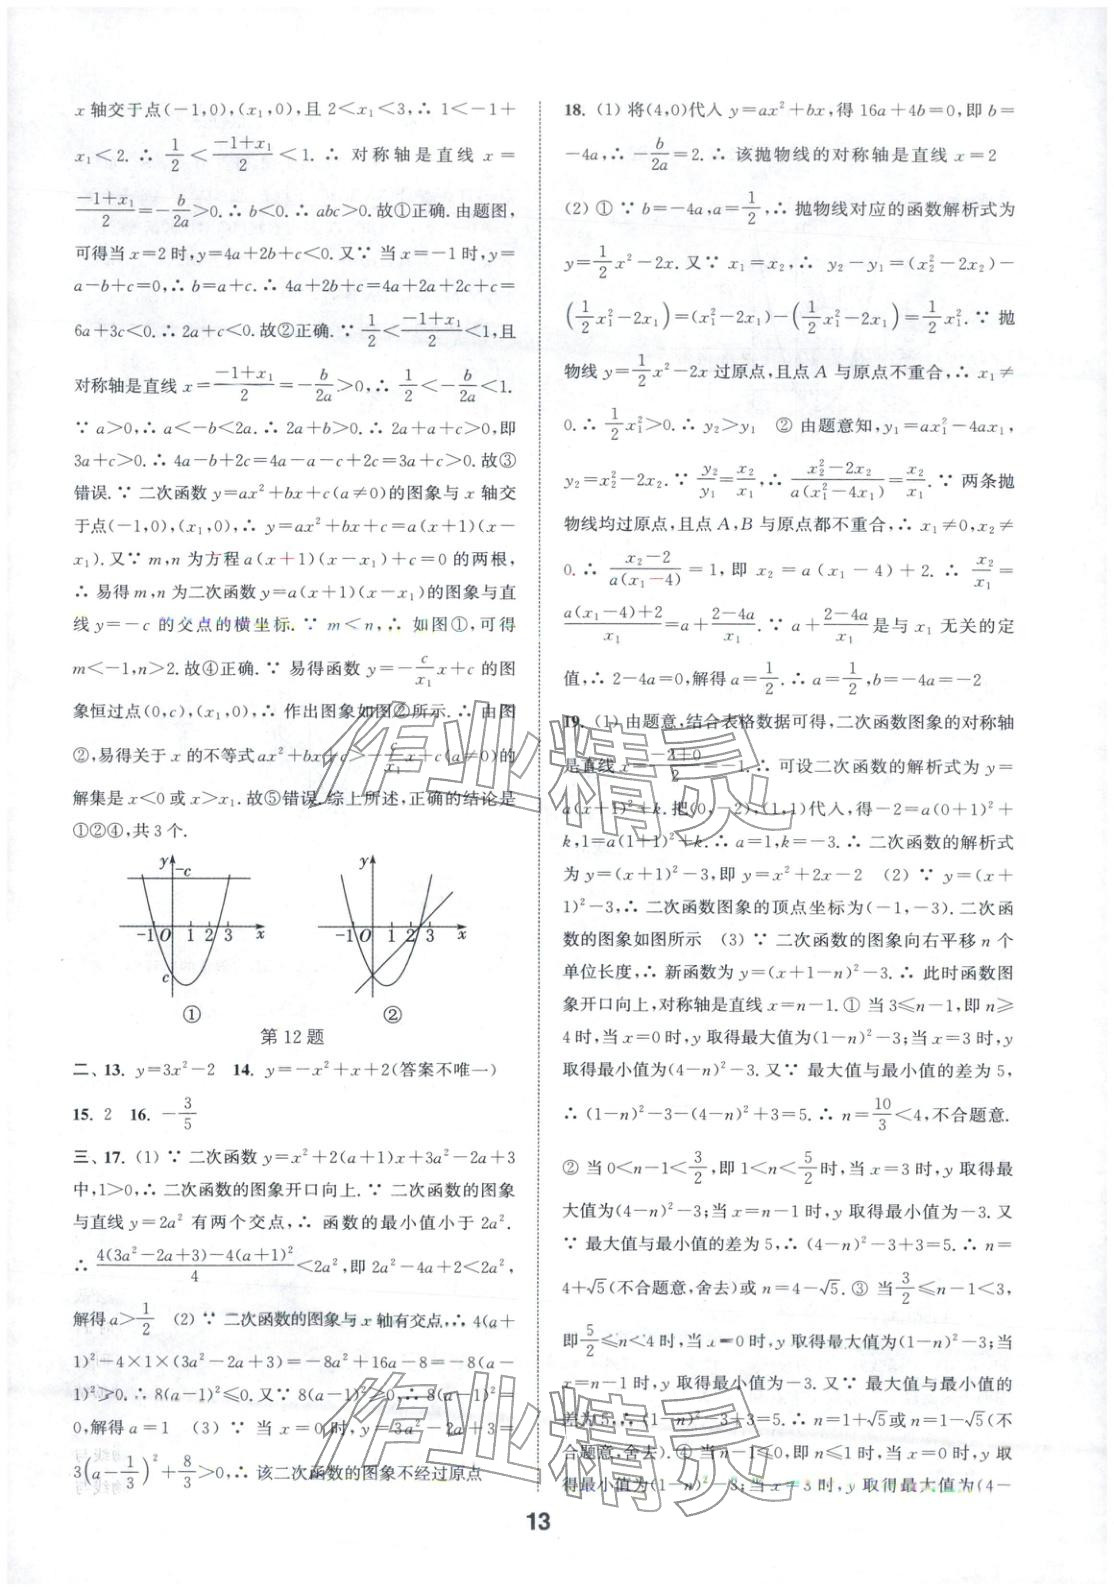 x 轴交于点(−1,0),(x₁,0),且 2<x₁<3,∴ 1<−1+
x₁<2.∴ 1/2<(−1+x₁)/2<1.∴ 对称轴是直线 x=
(−1+x₁)/2=−b/2a>0.∴ b<0.∴ abc>0.故①正确.由题图,
可得当 x=2 时,y=4a+2b+c<0.又∵ 当 x=−1 时,y=
a−b+c=0,∴ b=a+c.∴ 4a+2b+c=4a+2a+2c+c=
6a+3c<0.∴ 2a+c<0.故②正确.∵ 1/2<(−1+x₁)/2<1,且
对称轴是直线 x=(−1+x₁)/2=−b/2a>0,∴ 1/2<−b/2a<1.
∵ a>0,∴ a<−b<2a.∴ 2a+b>0.∴ 2a+a+c>0,即
3a+c>0.∴ 4a−b+2c=4a−a−c+2c=3a+c>0.故③
错误.∵ 二次函数 y=ax²+bx+c(a≠0)的图象与 x 轴交
于点(−1,0),(x₁,0),∴ y=ax²+bx+c=a(x+1)(x−
x₁).又∵ m,n 为方程 a(x+1)(x−x₁)+c=0 的两根,
∴ 易得 m,n 为二次函数 y=a(x+1)(x−x₁)的图象与直
线 y=−c 的交点的横坐标.∵ m<n,∴ 如图①,可得
m<−1,n>2.故④正确.∵ 易得函数 y=−c/x₁ x+c 的图
象恒过点(0,c),(x₁,0),∴ 作出图象如图②所示.∴ 由图
②,易得关于 x 的不等式 ax²+bx+c>−c/x₁ x+c(a≠0)的
解集是 x<0 或 x>x₁.故⑤错误.综上所述,正确的结论是
①②④,共 3 个.
y −c −1 O 1 2 3 x c
①
y −1 O 1 2 3 x
②
第 12 题
二、13. y=3x²−2 14. y=−x²+x+2(答案不唯一)
15. 2 16. −3/5
三、17. (1) ∵ 二次函数 y=x²+2(a+1)x+3a²−2a+3
中,1>0,∴ 二次函数的图象开口向上.∵ 二次函数的图象
与直线 y=2a² 有两个交点,∴ 函数的最小值小于 2a².
∴ (4(3a²−2a+3)−4(a+1)²)/4<2a²,即 2a²−4a+2<2a²,
解得 a>1/2 (2) ∵ 二次函数的图象与 x 轴有交点,∴ 4(a+
1)²−4×1×(3a²−2a+3)=−8a²+16a−8=−8(a−
1)²≥0.∴ 8(a−1)²≤0.又∵ 8(a−1)²≥0,∴ 8(a−1)²=
0,解得 a=1 (3) ∵ 当 x=0 时,y=3a²−2a+3=
3(a−1/3)²+8/3>0,∴ 该二次函数的图象不经过原点
18. (1) 将(4,0)代入 y=ax²+bx,得 16a+4b=0,即 b=
−4a,∴ −b/2a=2.∴ 该抛物线的对称轴是直线 x=2
(2) ① ∵ b=−4a,a=1/2,∴ 抛物线对应的函数解析式为
y=1/2x²−2x.又∵ x₁=x₂,∴ y₂−y₁=(x₂²−2x₂)−
(1/2x₁²−2x₁)=(x₁²−2x₁)−(1/2x₁²−2x₁)=1/2x₁².∵ 抛
物线 y=1/2x²−2x 过原点,且点 A 与原点不重合,∴ x₁≠
0.∴ 1/2x₁²>0.∴ y₂>y₁ ② 由题意知,y₁=ax₁²−4ax₁,
y₂=x₂²−2x₂.∵ y₂/y₁=x₂/x₁,∴ (x₂²−2x₂)/(a(x₁²−4x₁))=x₂/x₁.∵ 两条抛
物线均过原点,且点 A,B 与原点都不重合,∴ x₁≠0,x₂≠
0.∴ (x₂−2)/(a(x₁−4))=1,即 x₂=a(x₁−4)+2.∴ x₂/x₁=
(a(x₁−4)+2)/x₁=a+(2−4a)/x₁.∵ a+(2−4a)/x₁ 是与 x₁ 无关的定
值,∴ 2−4a=0,解得 a=1/2.∴ a=1/2,b=−4a=−2
19. (1) 由题意,结合表格数据可得,二次函数图象的对称轴
是直线 x=(−2+0)/2=−1.∴ 可设二次函数的解析式为 y=
a(x+1)²+k.把(0,−2),(1,1)代入,得−2=a(0+1)²+
k,1=a(1+1)²+k.∴ a=1,k=−3.∴ 二次函数的解析式
为 y=(x+1)²−3,即 y=x²+2x−2 (2) ∵ y=(x+
1)²−3,∴ 二次函数图象的顶点坐标为(−1,−3).二次函
数的图象如图所示 (3) ∵ 二次函数的图象向右平移 n 个
单位长度,∴ 新函数为 y=(x+1−n)²−3.∴ 此时函数图
象开口向上,对称轴是直线 x=n−1.① 当 3≤n−1,即 n≥
4 时,当 x=0 时,y 取得最大值为(1−n)²−3;当 x=3 时,y
取得最小值为(4−n)²−3.又∵ 最大值与最小值的差为 5,
∴ (1−n)²−3−(4−n)²+3=5.∴ n=10/3<4,不合题意.
② 当 0<n−1<3/2,即 1<n<5/2 时,当 x=3 时,y 取得最
大值为(4−n)²−3;当 x=n−1 时,y 取得最小值为−3.又
∵ 最大值与最小值的差为 5,∴ (4−n)²−3+3=5.∴ n=
4+√5(不合题意,舍去)或 n=4−√5.③ 当 3/2≤n−1<3,
即 5/2≤n<4 时,当 x=0 时,y 取得最大值为(1−n)²−3;当
x=n−1 时,y 取得最小值为−3.又∵ 最大值与最小值的
差为 5,∴ (1−n)²−3+3=5.∴ n=1+√5或 n=1−√5(不
合题意,舍去).④ 当 n−1≤0,即 n≤1 时,当 x=0 时,y 取
得最小值为(1−n)²−3;当 x=3 时,y 取得最大值为(4−
作业精灵
作业精灵
13